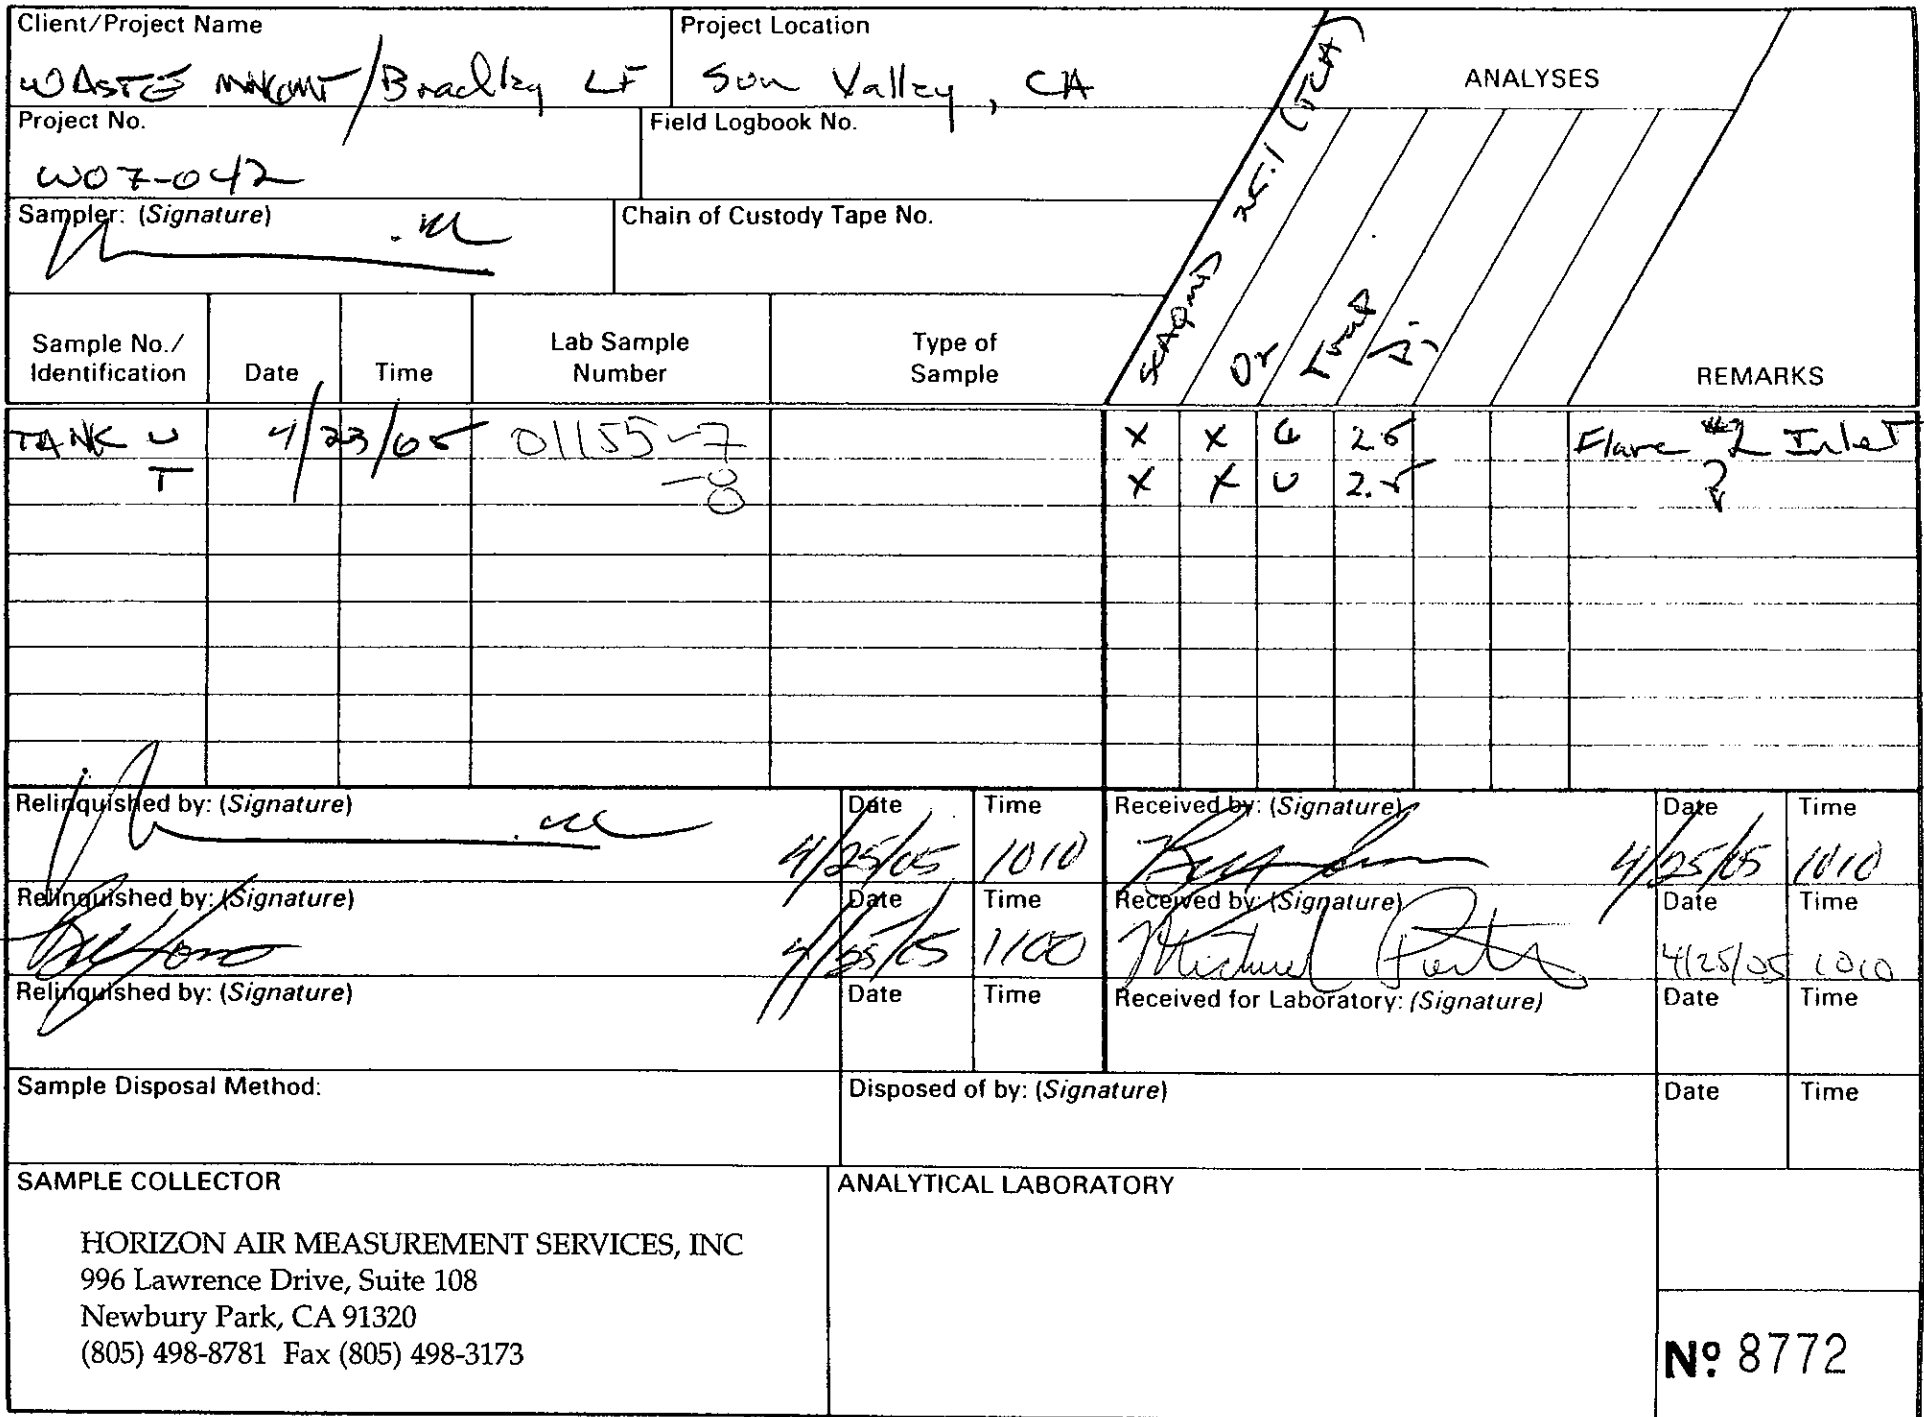 Client/Project Name
WASTE MNGMT/Bradley LF
Project Location
Sun Valley, CA
ANALYSES
Project No.
W07-042
Field Logbook No.
Sampler: (Signature)
Chain of Custody Tape No.
SCAQMD 25.1 (TCA)
O2
Trap
Sample No./ Identification
Date
Time
Lab Sample Number
Type of Sample
REMARKS
TANK U 4/23/05 01155-7 X X G 2.5 Flare #2 Inlet
T -8 X X U 2.5
Relinquished by: (Signature)
Date
4/25/05
Time
1010
Received by: (Signature)
Date
4/25/05
Time
1010
Relinquished by: (Signature)
Date
4/25/05
Time
1100
Received by: (Signature)
Michael
Date
4/25/05
Time
1010
Relinquished by: (Signature)
Date
Time
Received for Laboratory: (Signature)
Date
Time
Sample Disposal Method:
Disposed of by: (Signature)
Date
Time
SAMPLE COLLECTOR
HORIZON AIR MEASUREMENT SERVICES, INC
996 Lawrence Drive, Suite 108
Newbury Park, CA 91320
(805) 498-8781 Fax (805) 498-3173
ANALYTICAL LABORATORY
Nº 8772